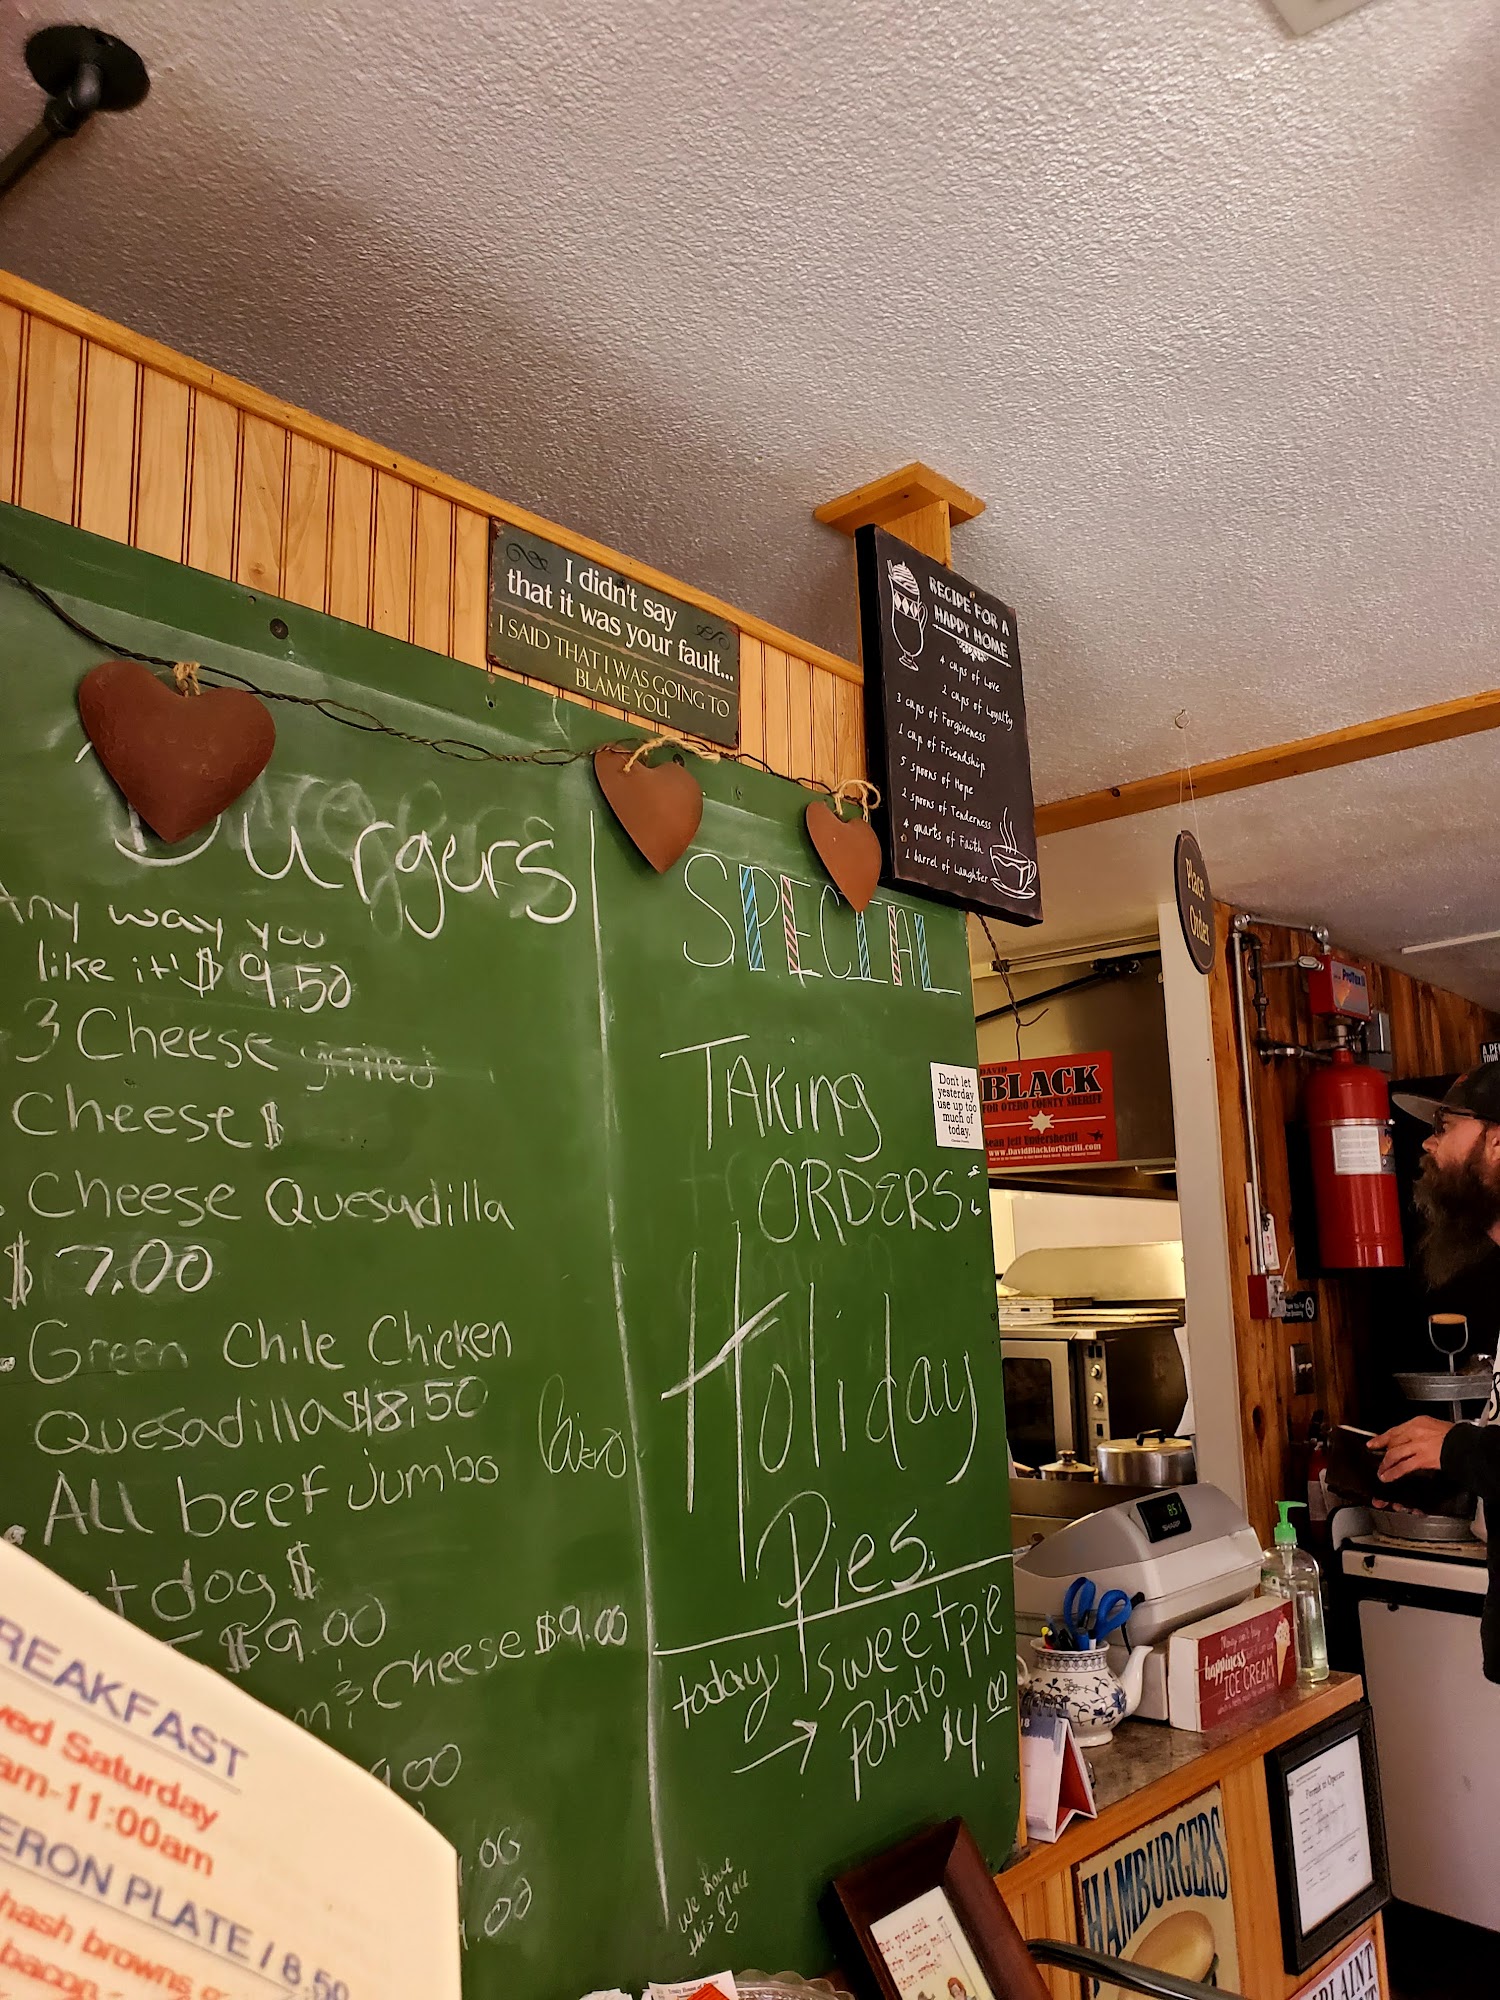 I didn't say
that it was your fault...
I SAID THAT I WAS GOING TO
BLAME YOU.
RECIPE FOR A
HAPPY HOME
4 cups of Love
2 cups of Loyalty
3 cups of Forgiveness
1 cup of Friendship
5 spoons of Hope
2 spoons of Tenderness
4 quarts of Faith
1 barrel of Laughter
Burgers
Any way you
like it! $9.50
3 Cheese grilled
Cheese $
Cheese Quesadilla
$7.00
Green Chile Chicken
Quesadilla $8.50
ALL beef jumbo
dog $
$9.00
Cheese $9.00
SPECIAL
TAKing
ORDERS:
Holiday
Pies.
today sweet pie
potato
$4.00
We Love
this place
Don't let
yesterday
use up too
much of
today.
DAVID
BLACK
FOR OTERO COUNTY SHERIFF
Sean Jett Undersheriff
www.DavidBlackforSheriff.com
Place
Order
ProTex II
851
SHARP
Money can't buy
happiness
ICE CREAM
Permit to Operate
HAMBURGERS
REAKFAST
ved Saturday
am-11:00am
ERON PLATE / 8.50
hash browns
bacon